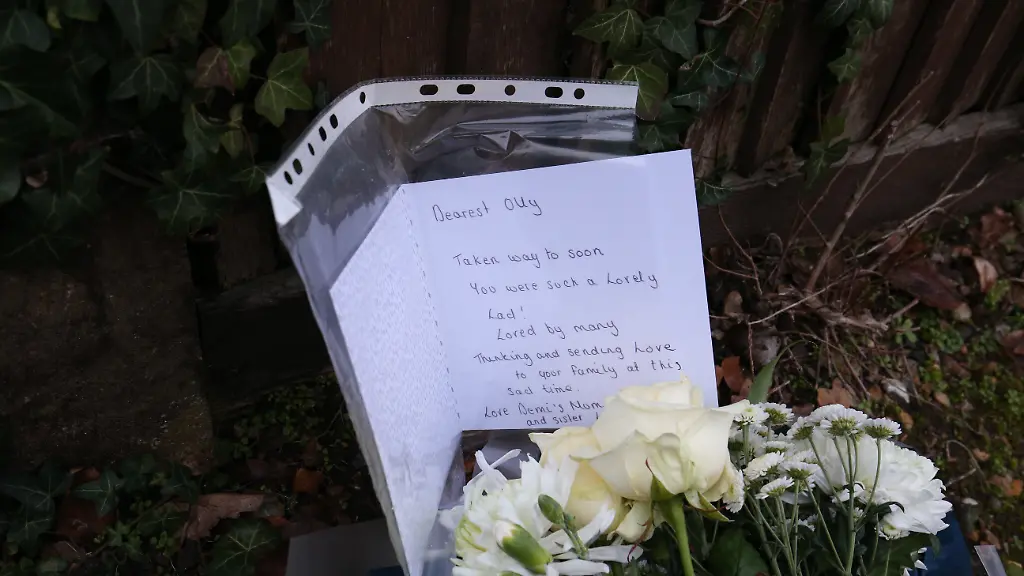 Dearest Olly
Taken way to soon
You were such a Lovely
Lad!
Loved by many
Thinking and sending Love
to your family at this
sad time.
Love Demi's Mom
and sister